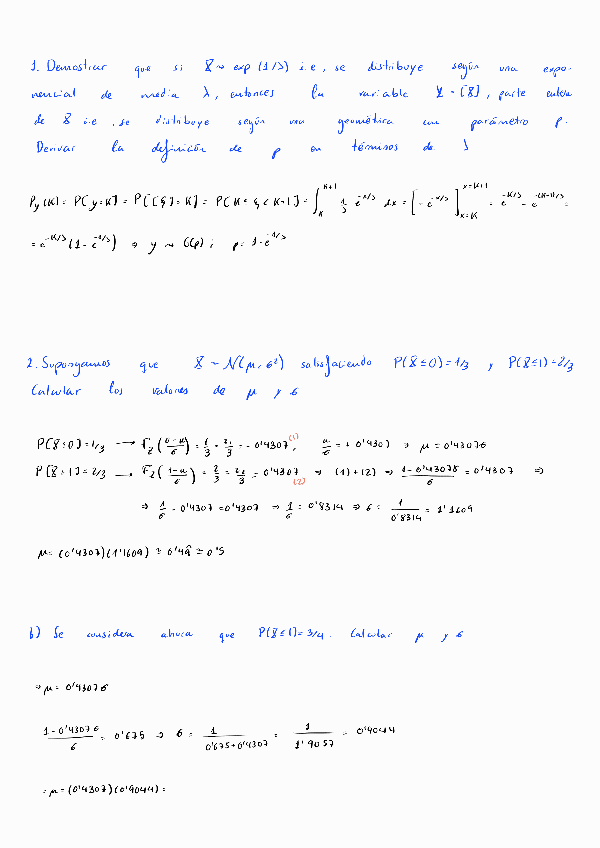 1. Demostrar que si X ~ exp (1/λ) i.e, se distribuye según una expo-
nencial de media λ, entonces la variable Y = [X], parte entera
de X i.e. se distribuye según una geométrica con parámetro p.
Derivar la definición de p en términos de λ
P_Y(K) = P[Y=K] = P[[X]=K] = P[K ≤ X < K+1] = ∫_K^{K+1} 1/λ e^{-x/λ} dx = [-e^{-x/λ}]_{x=K}^{x=K+1} = e^{-K/λ} - e^{-(K+1)/λ} =
= e^{-K/λ} (1 - e^{-1/λ}) ⇒ y ~ G(p) ; p = 1 - e^{-1/λ}
2. Supongamos que X ~ N(μ, σ²) satisfaciendo P(X≤0)=1/3 y P(X≤1)=2/3
Calcular los valores de μ y σ
P[X≤0)=1/3 → F_Z((0-μ)/σ) = 1/3 = z_{1/3} = -0'4307 (1), μ/σ = +0'4307 ⇒ μ = 0'4307σ
P[X≤1)=2/3 → F_Z((1-μ)/σ) = 2/3 = z_{2/3} = 0'4307 (2) ⇒ (1)+(2) ⇒ (1-0'4307σ)/σ = 0'4307 ⇒
⇒ 1/σ - 0'4307 = 0'4307 ⇒ 1/σ = 0'8314 ⇒ σ = 1/0'8314 = 1'1609
μ = (0'4307)(1'1609) = 0'49̂ = 0'5
b) Se considera ahora que P(X≤1)=3/4. Calcular μ y σ
⇒ μ = 0'4307σ
(1-0'4307σ)/σ = 0'675 ⇒ σ = 1/(0'675+0'4307) = 1/1'9057 = 0'9044
= μ = (0'4307)(0'9044) =